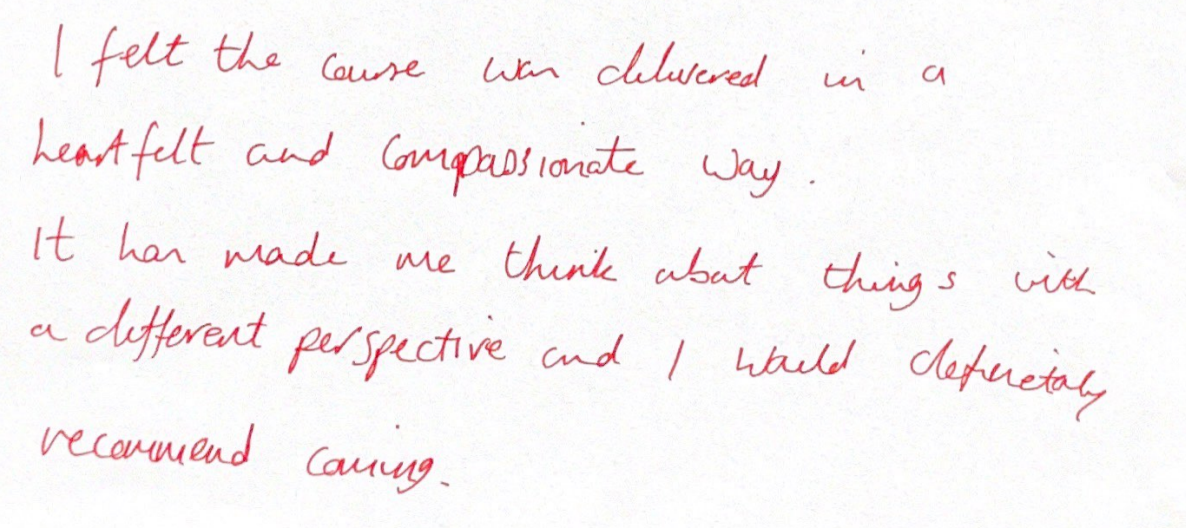 I felt the course was delivered in a
heartfelt and compassionate way.
It has made me think about things with
a different perspective and I would definetaly
recommend coming.